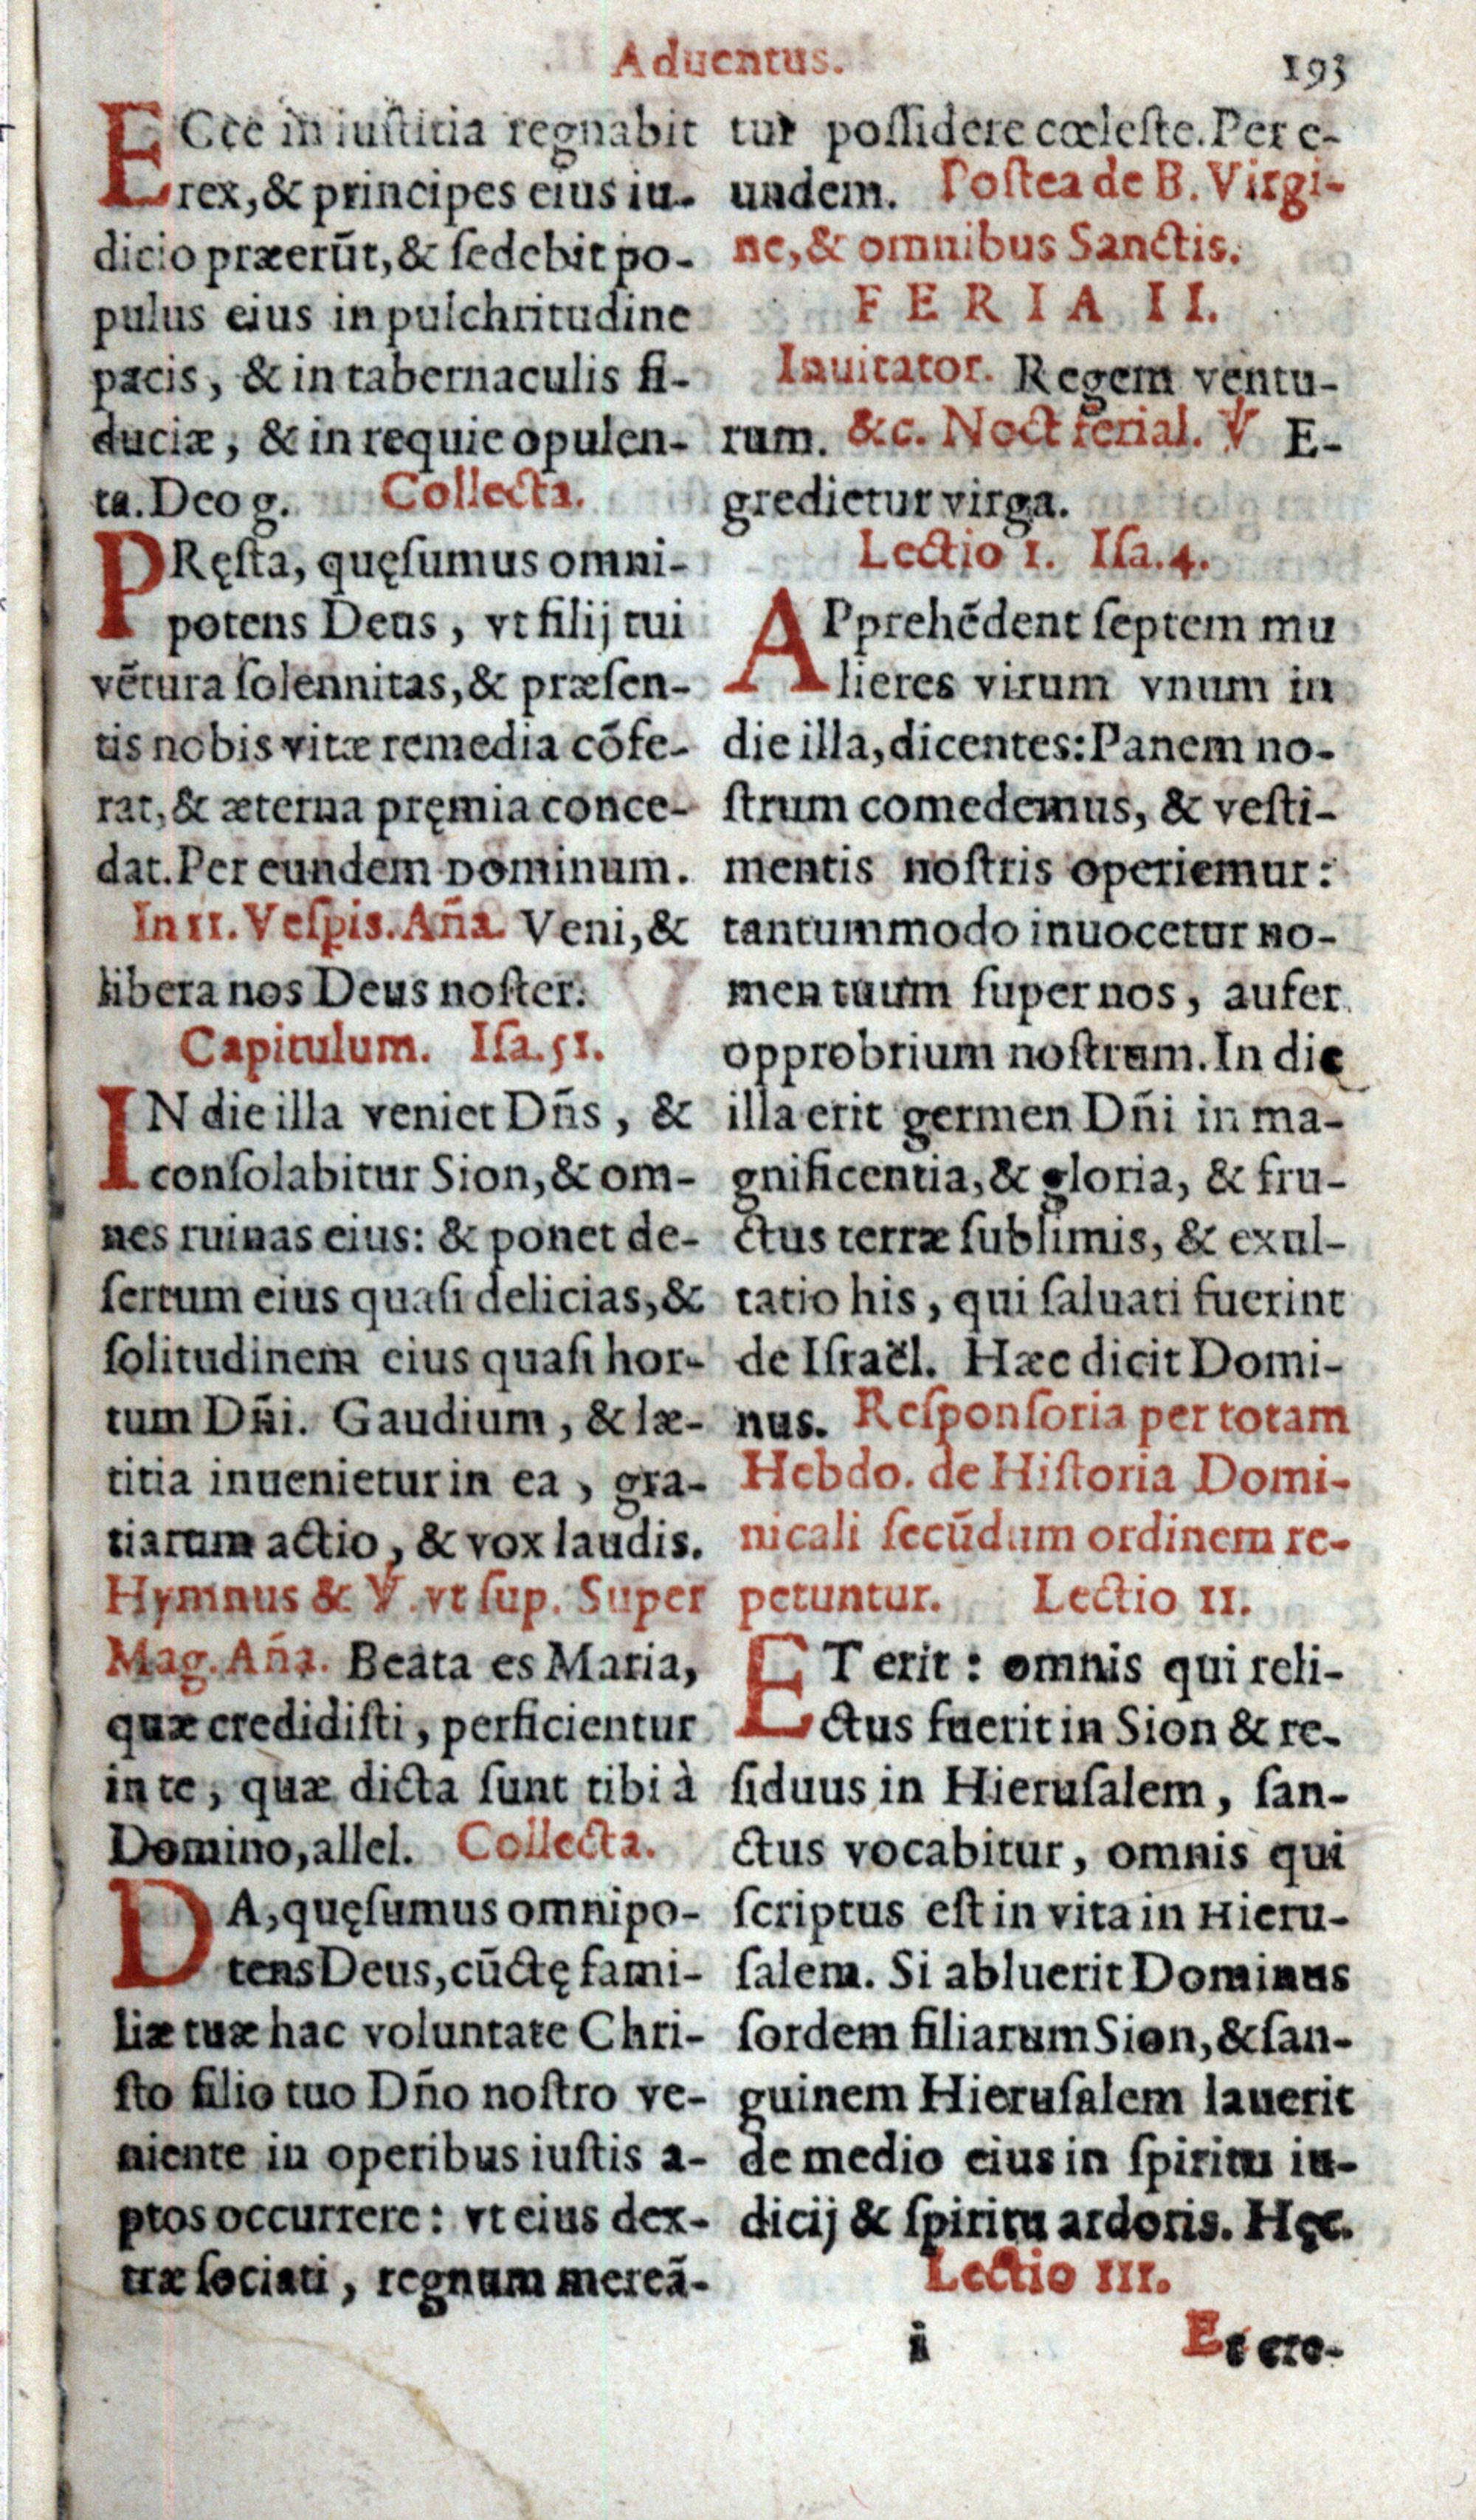 Aduentus. 193
ECce in iuſtitia regnabit
rex, & principes eius iu-
dicio præerũt, & ſedebit po-
pulus eius in pulchritudine
pacis, & in tabernaculis fi-
duciæ, & in requie opulen-
ta. Deo g. Collecta.
PRęſta, quęſumus omni-
potens Deus, vt filij tui
vẽtura ſolennitas, & præſen-
tis nobis vitæ remedia cõfe-
rat, & æterna pręmia conce-
dat. Per eundem Dominum.
In II. Veſpis. Aña. Veni, &
libera nos Deus noſter.
Capitulum. Iſa. 51.
IN die illa veniet Dñs, &
conſolabitur Sion, & om-
nes ruinas eius: & ponet de-
ſertum eius quaſi delicias, &
ſolitudinem eius quaſi hor-
tum Dñi. Gaudium, & læ-
titia inuenietur in ea, gra-
tiarum actio, & vox laudis.
Hymnus & ℣. vt ſup. Super
Mag. Aña. Beata es Maria,
quæ credidiſti, perficientur
in te, quæ dicta ſunt tibi à
Domino, allel. Collecta.
DA, quęſumus omnipo-
tens Deus, cũctę fami-
liæ tuæ hac voluntate Chri-
ſto filio tuo Dño noſtro ve-
niente in operibus iuſtis a-
ptos occurrere: vt eius dex-
træ ſociati, regnum mereã-
tur poſſidere cœleſte. Per e-
undem. Poſtea de B. Virgi-
ne, & omnibus Sanctis.
FERIA II.
Inuitator. Regem ventu-
rum. &c. Noct ferial. ℣ E-
gredietur virga.
Lectio I. Iſa. 4.
APprehẽdent ſeptem mu
lieres virum vnum in
die illa, dicentes: Panem no-
ſtrum comedemus, & veſti-
mentis noſtris operiemur:
tantummodo inuocetur no-
men tuum ſuper nos, aufer
opprobrium noſtrum. In die
illa erit germen Dñi in ma-
gnificentia, & gloria, & fru-
ctus terræ ſublimis, & exul-
tatio his, qui ſaluati fuerint
de Iſraël. Hæc dicit Domi-
nus. Reſponſoria per totam
Hebdo. de Hiſtoria Domi-
nicali ſecũdum ordinem re-
petuntur. Lectio II.
ET erit: omnis qui reli-
ctus fuerit in Sion & re-
ſiduus in Hieruſalem, ſan-
ctus vocabitur, omnis qui
ſcriptus eſt in vita in Hieru-
ſalem. Si abluerit Dominus
ſordem filiarum Sion, & ſan-
guinem Hieruſalem lauerit
de medio eius in ſpiritu iu-
dicij & ſpiritu ardoris. Hęc.
Lectio III.
i Et cre-